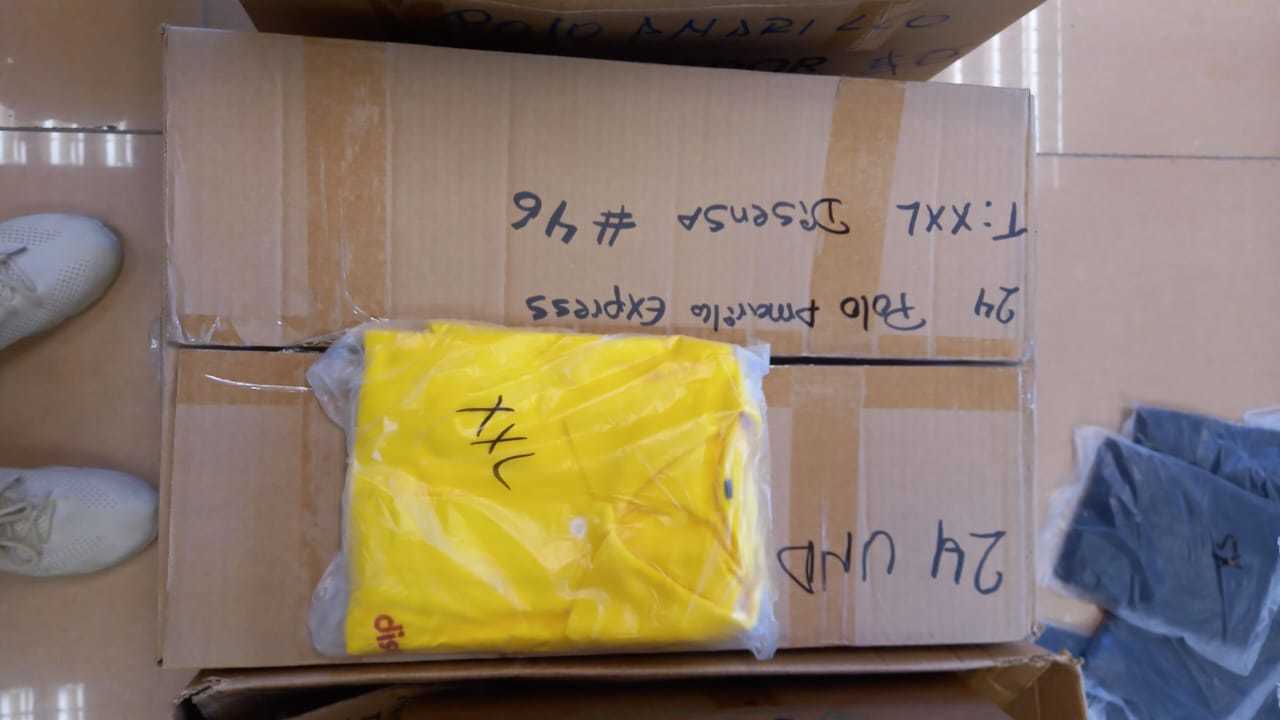 POLO AMARILLO
24 UND
24 Polo Amarillo Express
T: XXL Disensa #46
XXL
dis